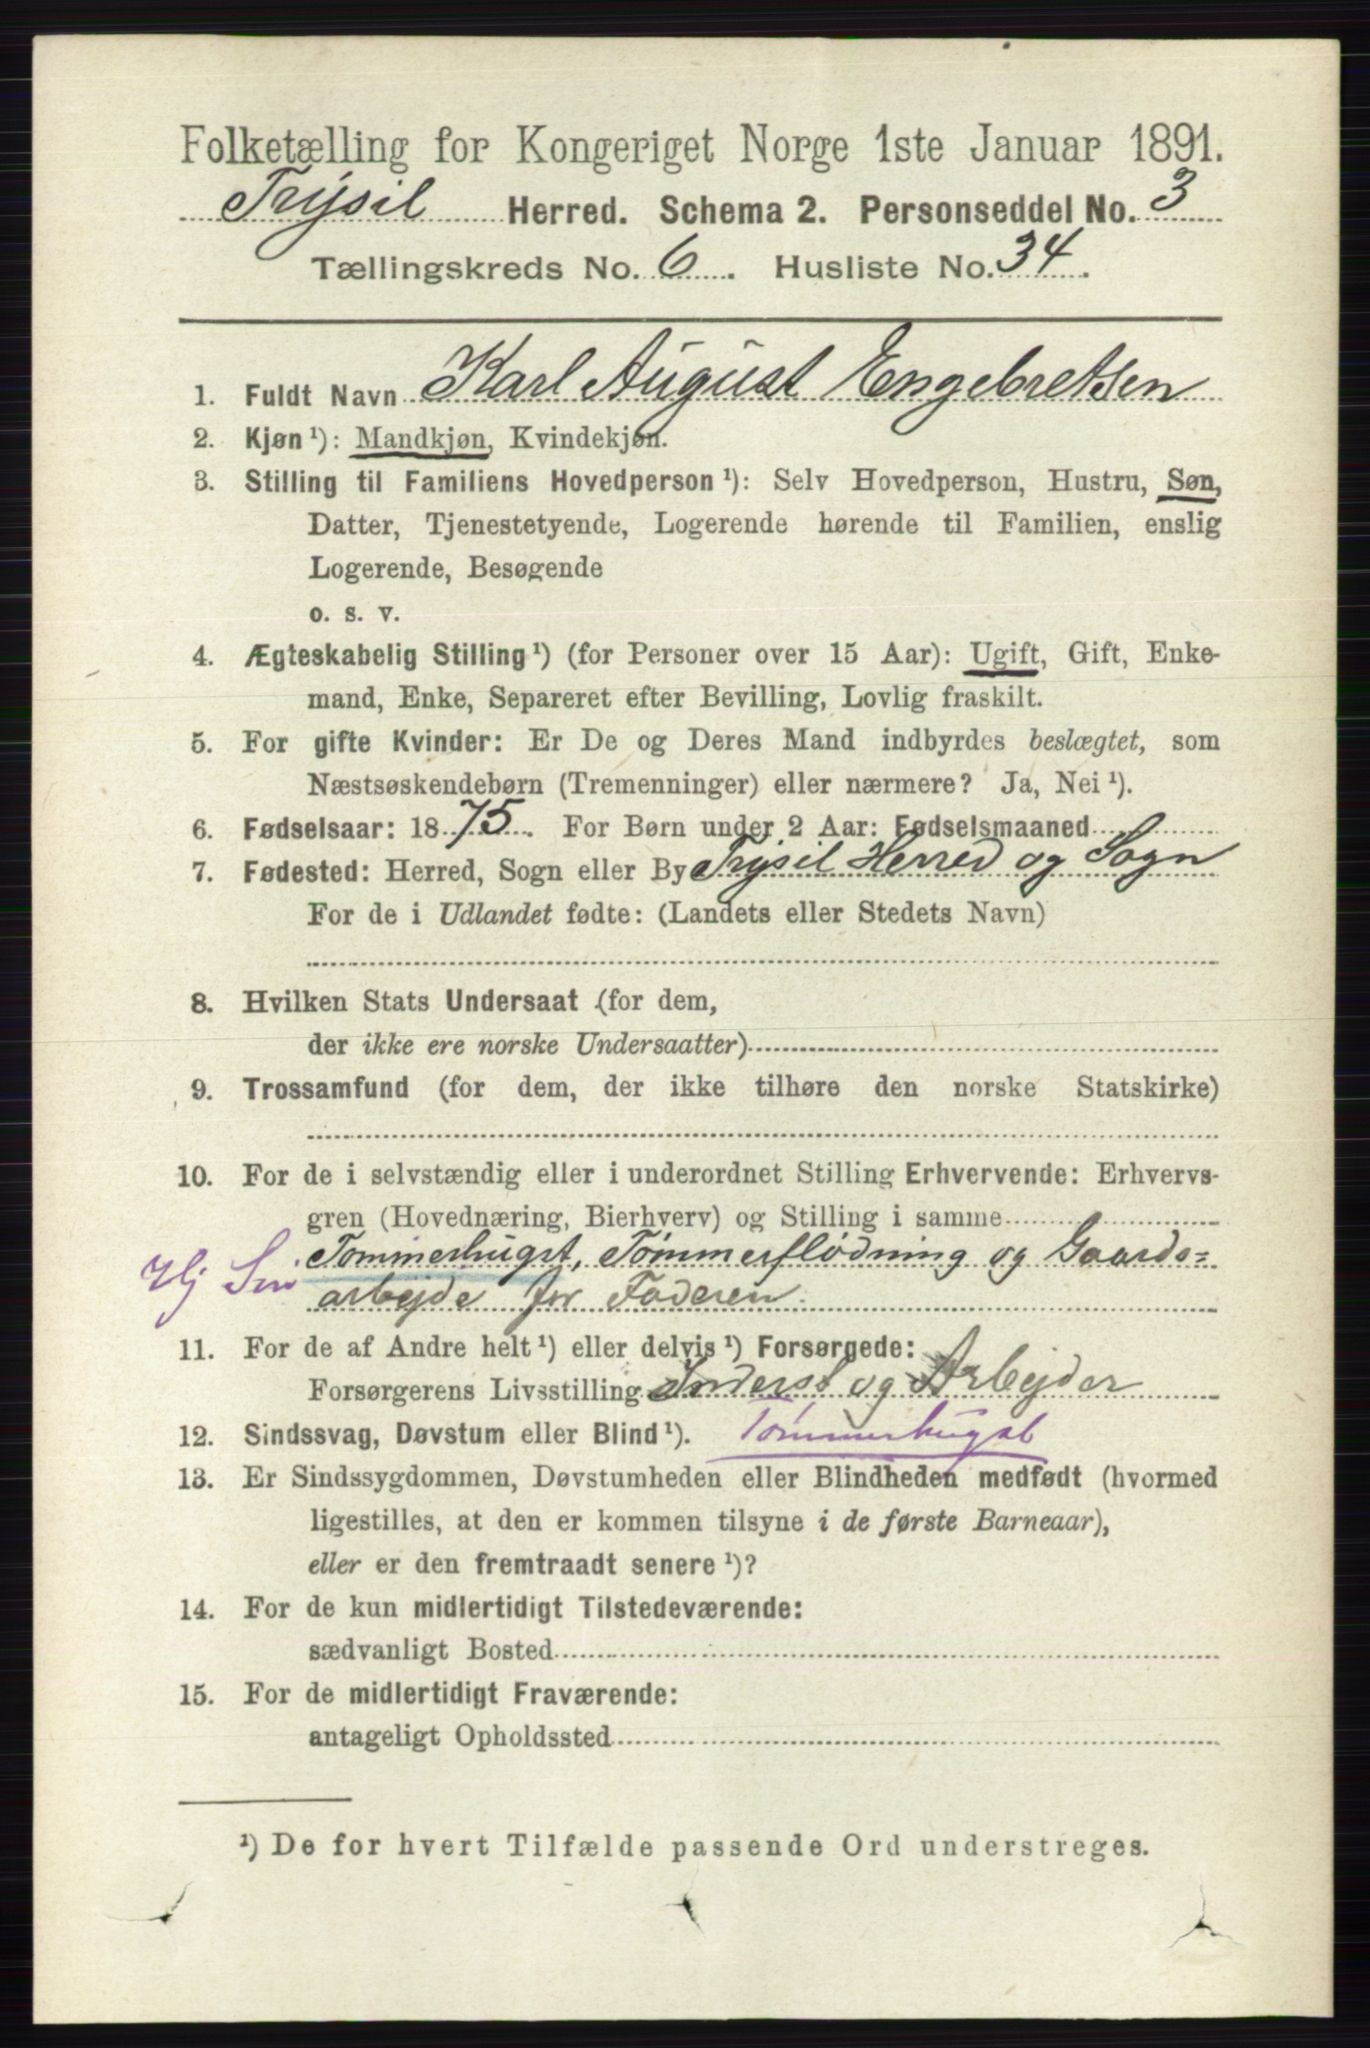 Folketælling for Kongeriget Norge 1ste Januar 1891.
Trysil Herred. Schema 2. Personseddel No. 3
Tællingskreds No. 6. Husliste No. 34.
1. Fuldt Navn Karl August Engebretsen
2. Kjøn ¹): Mandkjøn, Kvindekjøn.
3. Stilling til Familiens Hovedperson ¹): Selv Hovedperson, Hustru, Søn,
Datter, Tjenestetyende, Logerende hørende til Familien, enslig
Logerende, Besøgende
o. s. v.
4. Ægteskabelig Stilling ¹) (for Personer over 15 Aar): Ugift, Gift, Enke-
mand, Enke, Separeret efter Bevilling, Lovlig fraskilt.
5. For gifte Kvinder: Er De og Deres Mand indbyrdes beslægtet, som
Næstsøskendebørn (Tremenninger) eller nærmere? Ja, Nei ¹).
6. Fødselsaar: 1875. For Børn under 2 Aar: Fødselsmaaned
7. Fødested: Herred, Sogn eller By Trysil Herred og Sogn
For de i Udlandet fødte: (Landets eller Stedets Navn)
8. Hvilken Stats Undersaat (for dem,
der ikke ere norske Undersaatter)
9. Trossamfund (for dem, der ikke tilhøre den norske Statskirke)
10. For de i selvstændig eller i underordnet Stilling Erhvervende: Erhvervs-
gren (Hovednæring, Bierhverv) og Stilling i samme
Tømmerhugst, Tømmerflødning og Gaards-
arbejde for Faderen.
11. For de af Andre helt ¹) eller delvis ¹) Forsørgede:
Forsørgerens Livsstilling Inderst og Arbejder
12. Sindssvag, Døvstum eller Blind ¹). Tømmerhugst
13. Er Sindssygdommen, Døvstumheden eller Blindheden medfødt (hvormed
ligestilles, at den er kommen tilsyne i de første Barneaar),
eller er den fremtraadt senere ¹)?
14. For de kun midlertidigt Tilstedeværende:
sædvanligt Bosted
15. For de midlertidigt Fraværende:
antageligt Opholdssted
¹) De for hvert Tilfælde passende Ord understreges.